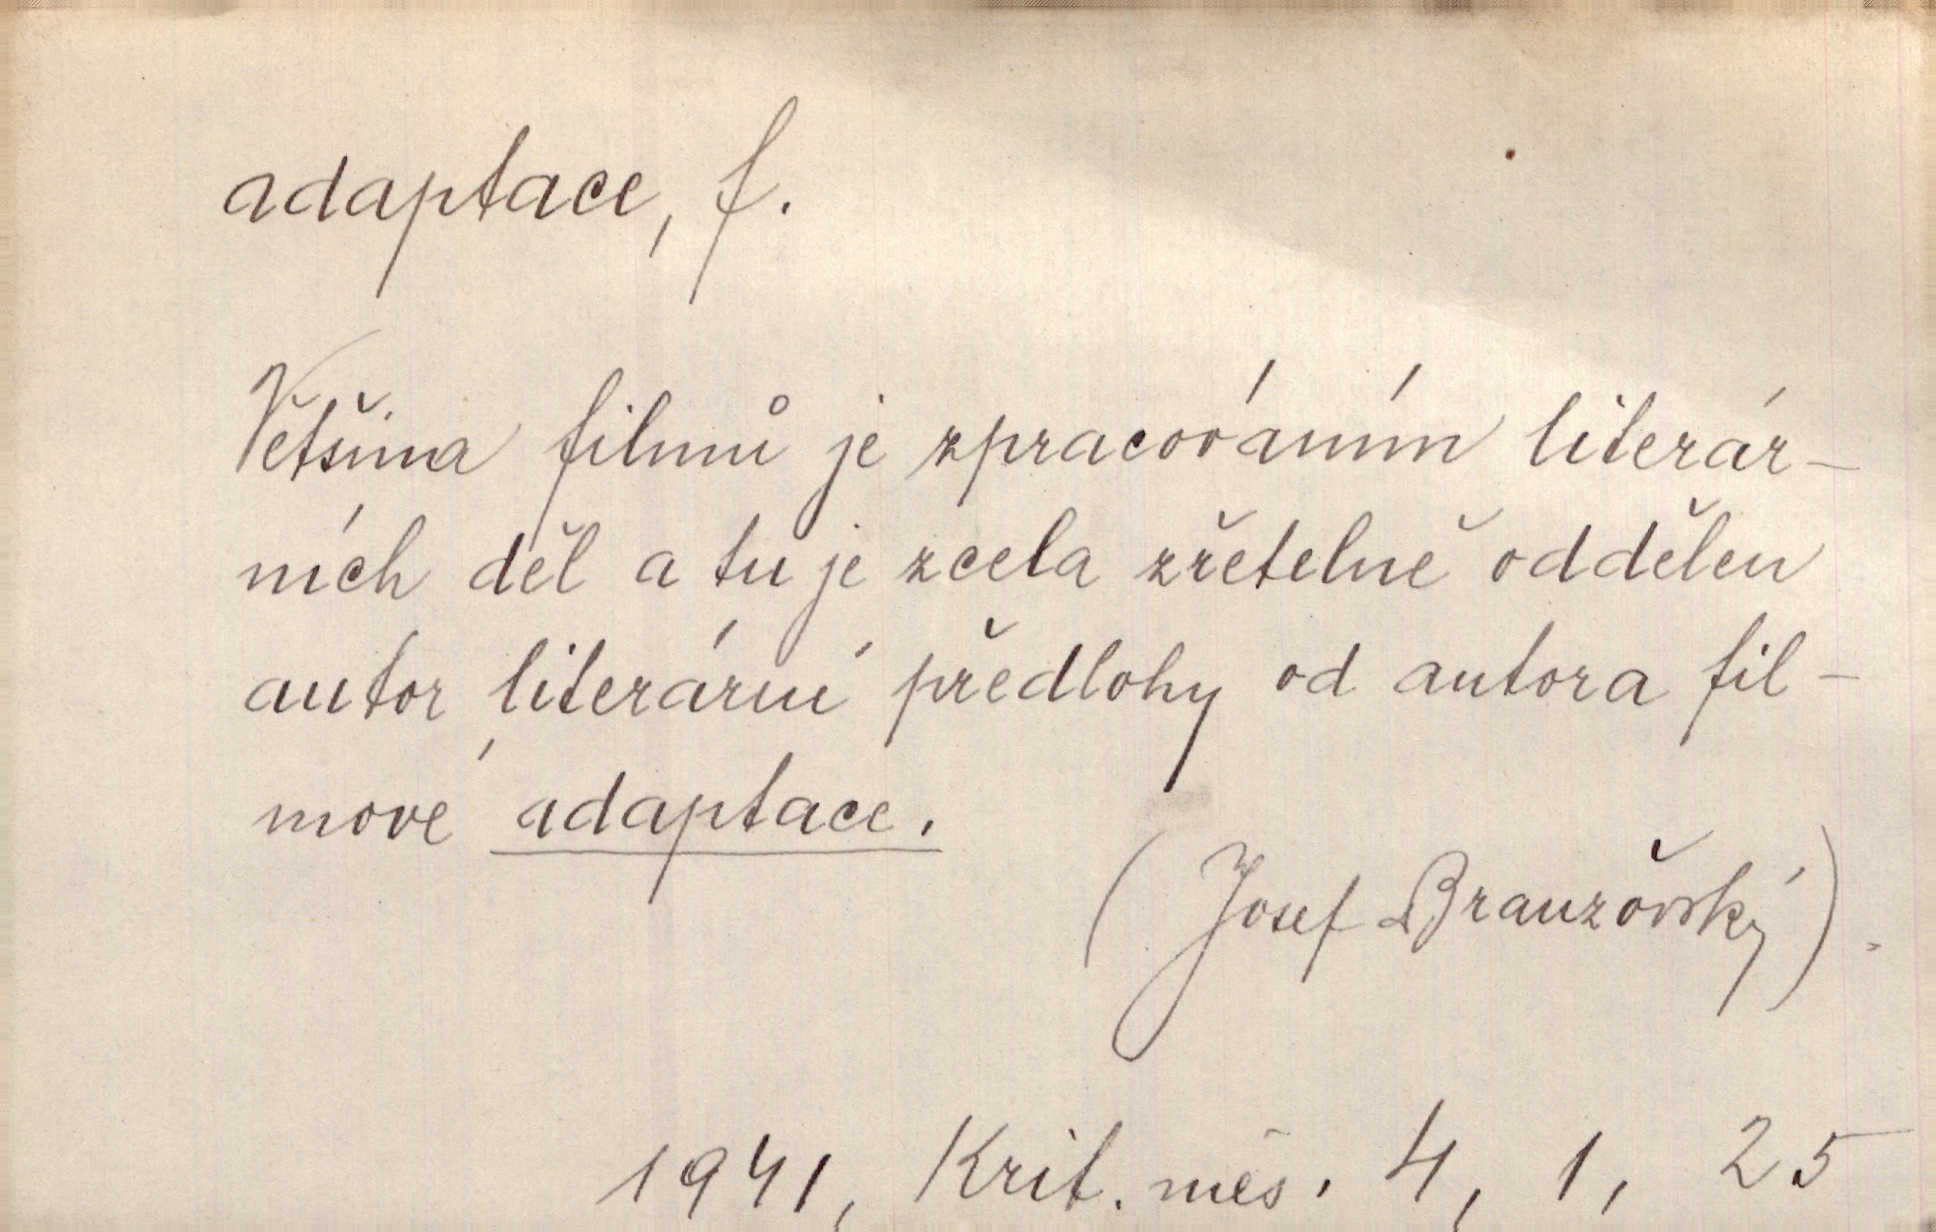 adaptace, f.
Většina filmů je zpracováním literár-
ních děl a tu je zcela zřetelně oddělen
autor literární předlohy od autora fil-
mové adaptace.
(Josef Branzŏvský).
1941, Krit. měs. 4, 1, 25